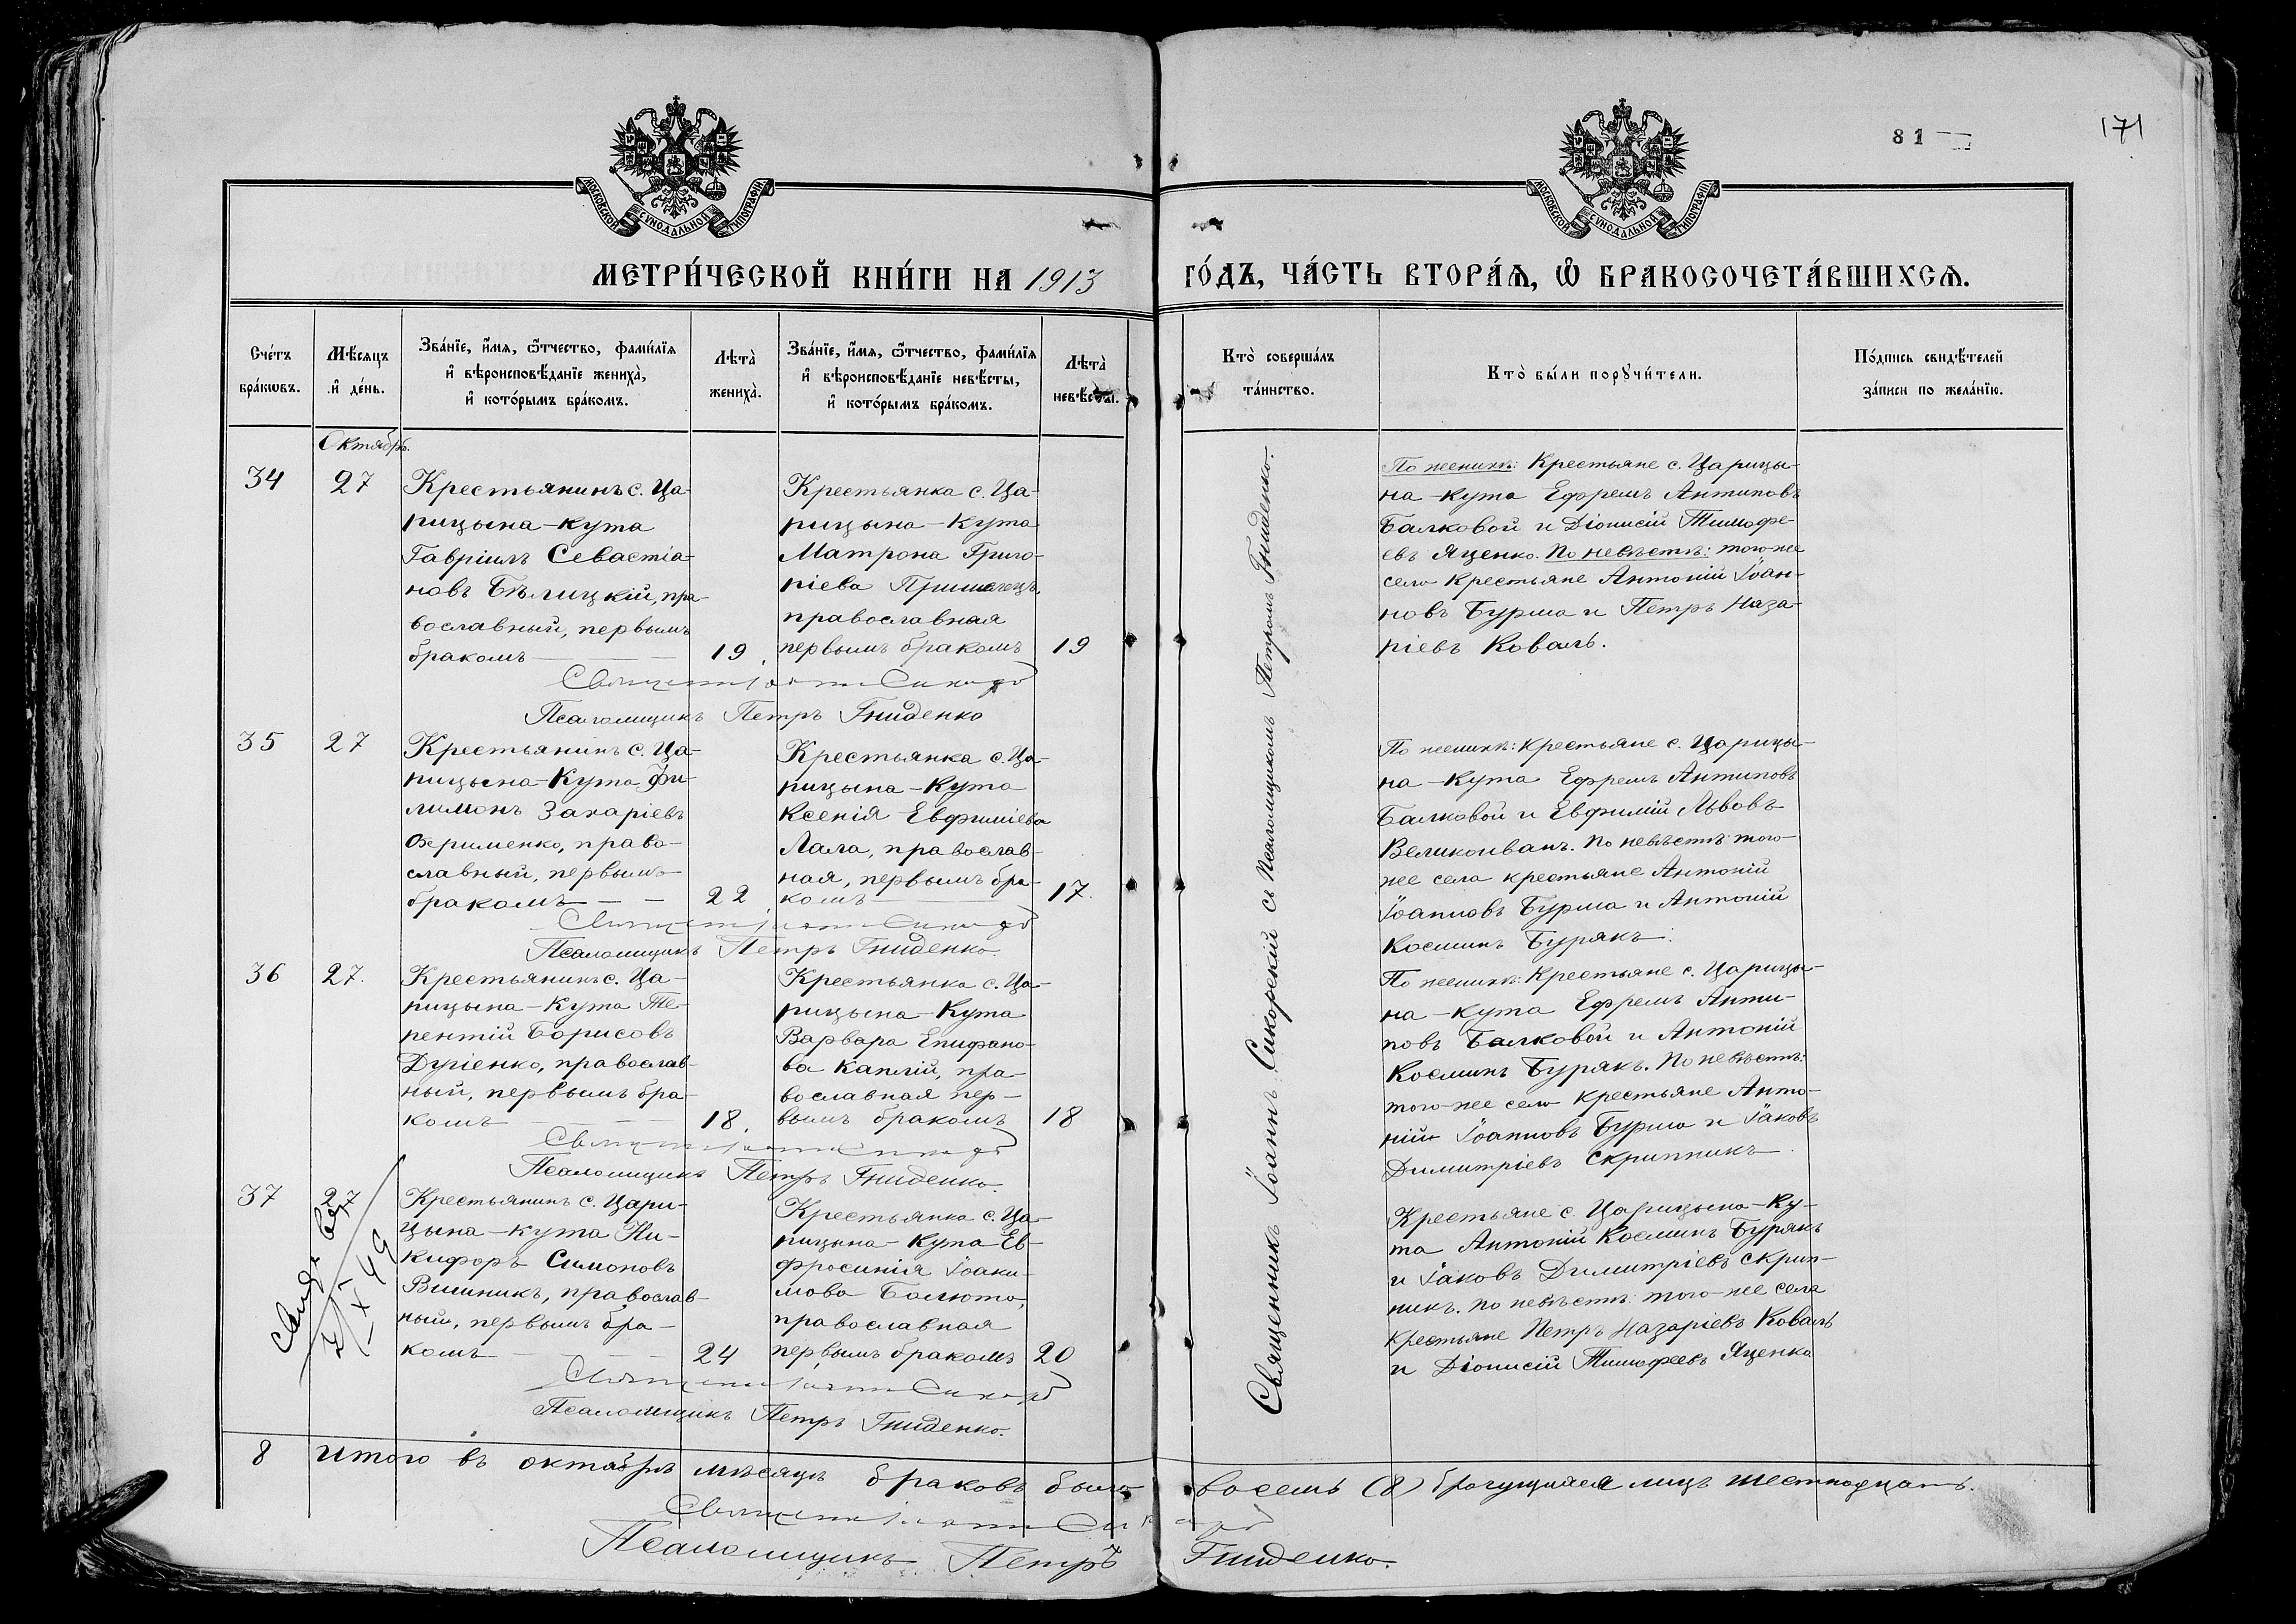 81
171
МОСКОВСКОЙ СѴНОДАЛЬНОЙ ТИПОГРАФІИ
МОСКОВСКОЙ СѴНОДАЛЬНОЙ ТИПОГРАФІИ
МЕТРИ́ЧЕСКОЙ КНИ́ГИ НА 1913 ГО́ДЪ, ЧА́СТЬ ВТОРА́Ѧ, Ѽ БРАКОСОЧЕТА́ВШИХСѦ.
Сче́тъ
бра́кѡвъ.
Мѣ́сяцъ
и҆ де́нь.
Зва́нїе, и҆́мѧ, ѻ҆́тчество, фами́лїѧ
и҆ вѣроисповѣ́данїе жениха̀,
и҆ кото́рымъ бра́комъ.
Лѣта̀
жениха̀.
Зва́нїе, и҆́мѧ, ѻ҆́тчество, фами́лїѧ
и҆ вѣроисповѣ́данїе невѣ́сты,
и҆ кото́рымъ бра́комъ.
Лѣта̀
невѣ́сты.
Кто̀ соверша́лъ
та́инство.
Кто̀ бы́ли порꙋчи́тели.
По́дпись свидѣ́телей
за́писи по жела́нїю.
Октябрь.
34
27
Крестьянинъ с. Ца-
рицына-Кута
Гавріилъ Севастіа-
новъ Бѣлицкій, пра-
вославный, первымъ
бракомъ
19
Крестьянка с. Ца-
рицына-Кута
Матрона Григо-
ріева Пришлецъ,
православная
первымъ бракомъ
19
По женихѣ: Крестьяне с. Царицы-
на-Кута Ефремъ Антиповъ
Балковой и Діонисій Тимофе-
евъ Яценко. По невѣстѣ: того-же
села крестьяне Антоній Іоан-
новъ Бурма и Петръ Наза-
ріевъ Коваль.
Псаломщикъ Петръ Гниденко
35
27
Крестьянинъ с. Ца-
рицына-Кута Фи-
лимонъ Захаріевъ
Охрименко, право-
славный, первымъ
бракомъ
22
Крестьянка с. Ца-
рицына-Кута
Ксенія Евфиміева
Лала, православ-
ная, первымъ бра-
комъ
17.
По женихѣ: Крестьяне с. Царицы-
на-Кута Ефремъ Антиповъ
Балковой и Евфимій Львовъ
Великоиванъ. По невѣстѣ: того-
же села крестьяне Антоній
Іоанновъ Бурма и Антоній
Косминъ Бурякъ.
Псаломщикъ Петръ Гниденко.
36
27.
Крестьянинъ с. Ца-
рицына-Кута Те-
рентій Борисовъ
Дуріенко, православ-
ный, первымъ бра-
комъ
18.
Крестьянка с. Ца-
рицына-Кута
Варвара Епифано-
ва Каплій, пра-
вославная пер-
вымъ бракомъ
18
По женихѣ: Крестьяне с. Царицы-
на-Кута Ефремъ Анти-
повъ Балковой и Антоній
Косминъ Бурякъ. По невѣстѣ:
того-же села крестьяне Анто-
ній Іоанновъ Бурма и Іаковъ
Димитріевъ Скрипникъ.
Псаломщикъ Петръ Гниденко.
37
27
Крестьянинъ с. Цари-
цына-Кута Ни-
кифоръ Симоновъ
Вишникъ, православ-
ный, первымъ бра-
комъ
24
Крестьянка с. Ца-
рицына-Кута Ев-
фросинія Іоаки-
мова Балюта,
православная
первымъ бракомъ
20
Крестьяне с. Царицына-Ку-
та Антоній Косминъ Бурякъ
и Іаковъ Димитріевъ Скрип-
никъ. по невѣстѣ: того-же села
крестьяне Петръ Назаріевъ Коваль
и Діонисій Тимофеевъ Яценко
Псаломщикъ Петръ Гниденко.
Священникъ Іоаннъ Сикорскій съ Псаломщикомъ Петромъ Гниденко.
8
Итого въ октябрѣ мѣсяцѣ браковъ было восемь (8) брачущихся лицъ шестнадцать.
Псаломщикъ Петръ Гниденко.